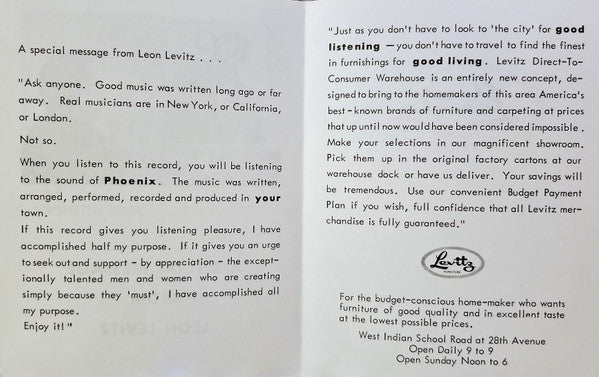 A special message from Leon Levitz . . .
"Ask anyone. Good music was written long ago or far
away. Real musicians are in New York, or California,
or London.
Not so.
When you listen to this record, you will be listening
to the sound of Phoenix. The music was written,
arranged, performed, recorded and produced in your
town.
If this record gives you listening pleasure, I have
accomplished half my purpose. If it gives you an urge
to seek out and support - by appreciation - the except-
ionally talented men and women who are creating
simply because they 'must', I have accomplished all
my purpose.
Enjoy it!"
"Just as you don't have to look to 'the city' for good
listening — you don't have to travel to find the finest
in furnishings for good living. Levitz Direct-To-
Consumer Warehouse is an entirely new concept, de-
signed to bring to the homemakers of this area America's
best-known brands of furniture and carpeting at prices
that up until now would have been considered impossible.
Make your selections in our magnificent showroom.
Pick them up in the original factory cartons at our
warehouse dock or have us deliver. Your savings will
be tremendous. Use our convenient Budget Payment
Plan if you wish, full confidence that all Levitz mer-
chandise is fully guaranteed."
Levitz
FURNITURE
For the budget-conscious home-maker who wants
furniture of good quality and in excellent taste
at the lowest possible prices.
West Indian School Road at 28th Avenue
Open Daily 9 to 9
Open Sunday Noon to 6